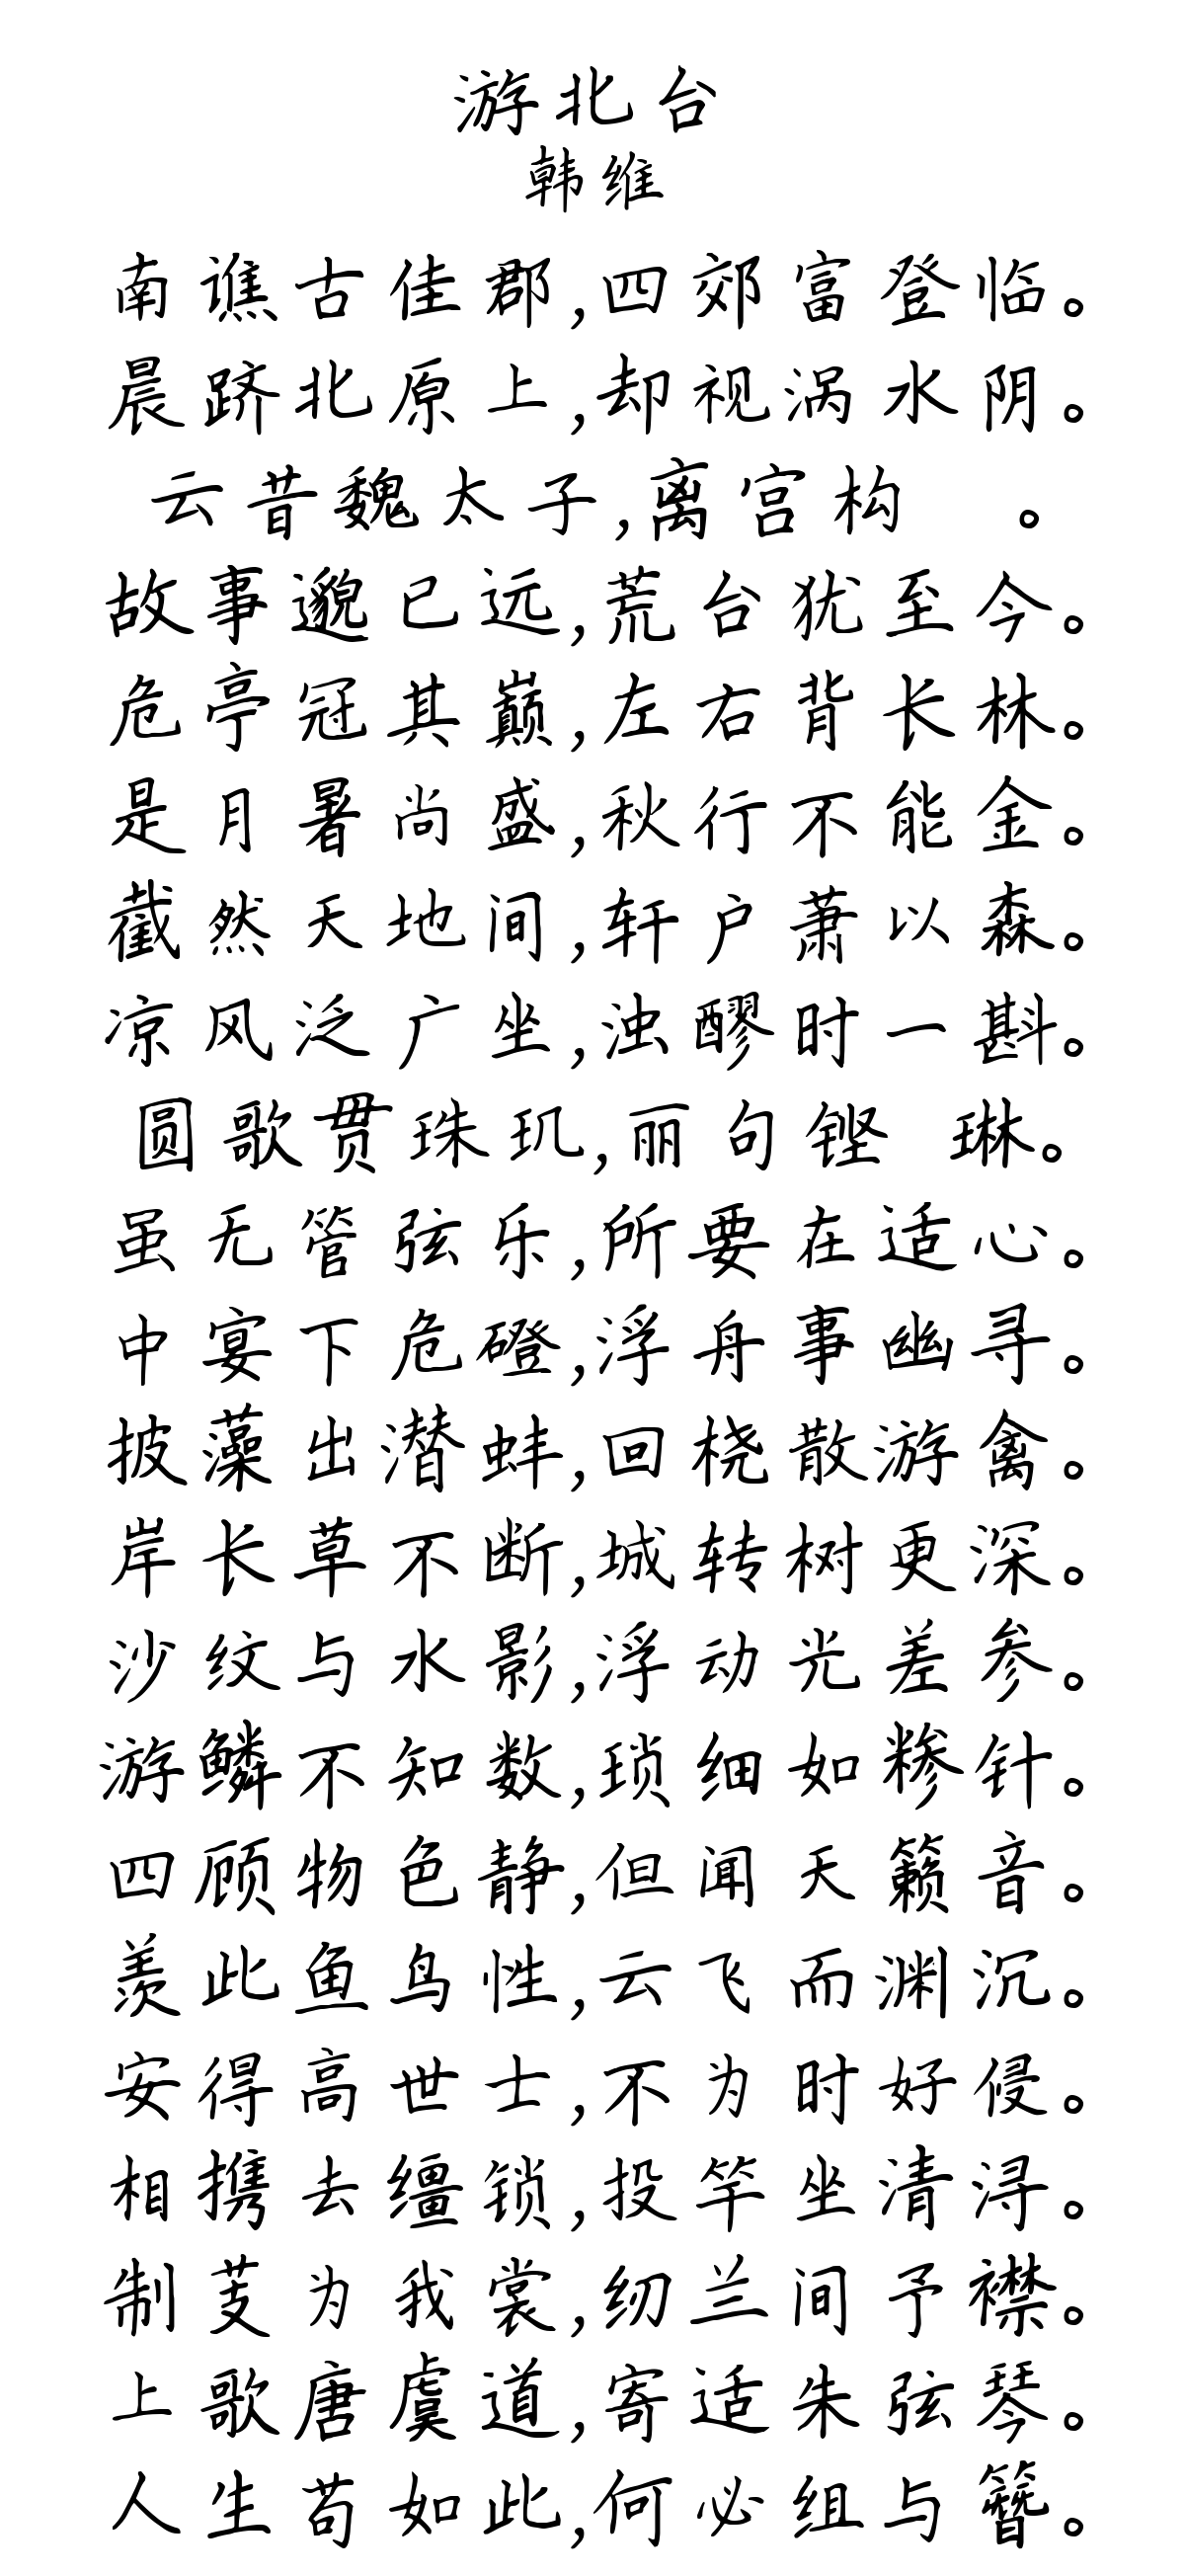 游北台
韩维
南谯古佳郡,四郊富登临。
晨跻北原上,却视涡水阴。
云昔魏太子,离宫构 。
故事邈已远,荒台犹至今。
危亭冠其巅,左右背长林。
是月暑尚盛,秋行不能金。
截然天地间,轩户萧以森。
凉风泛广坐,浊醪时一斟。
圆歌贯珠玑,丽句铿 琳。
虽无管弦乐,所要在适心。
中宴下危磴,浮舟事幽寻。
披藻出潜蚌,回桡散游禽。
岸长草不断,城转树更深。
沙纹与水影,浮动光差参。
游鳞不知数,琐细如糁针。
四顾物色静,但闻天籁音。
羡此鱼鸟性,云飞而渊沉。
安得高世士,不为时好侵。
相携去缰锁,投竿坐清浔。
制芰为我裳,纫兰间予襟。
上歌唐虞道,寄适朱弦琴。
人生苟如此,何必组与簪。